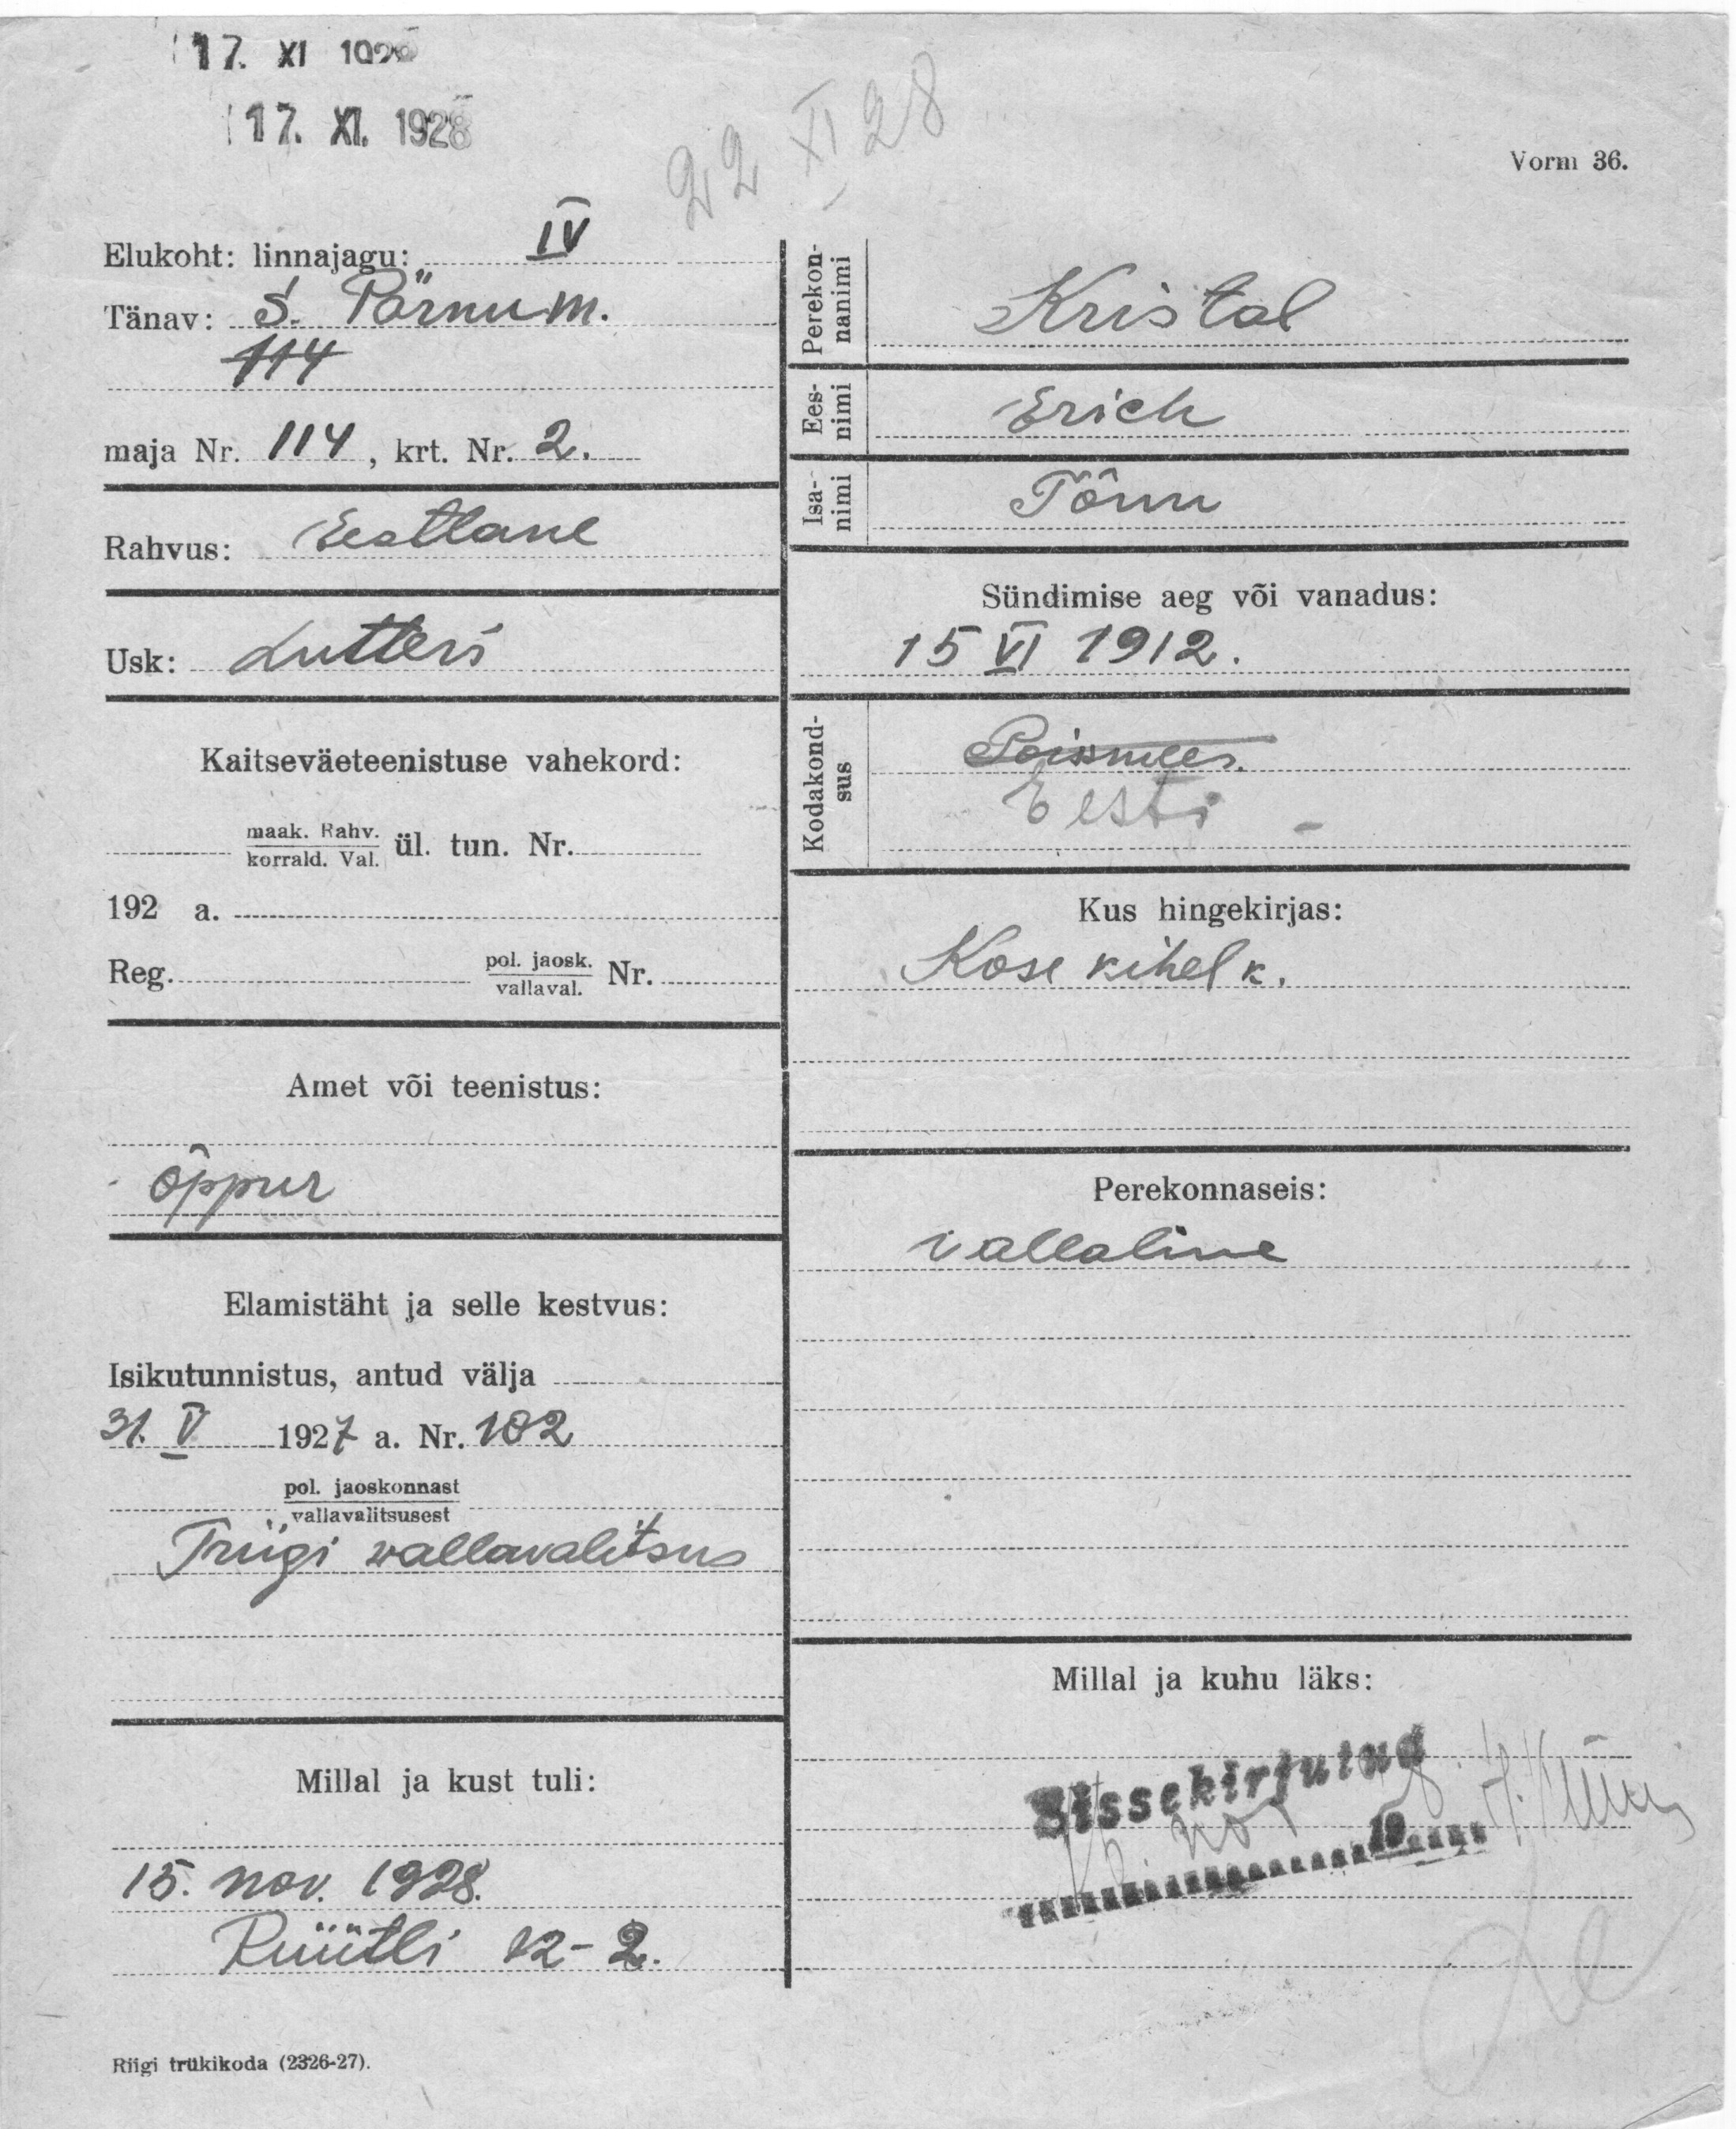 17. XI 192
17. XI. 1928
22 XI 28
Vorm 36.
Elukoht: linnajagu: IV
Tänav: S. Pärnu m.
114
maja Nr. 114, krt. Nr. 2.
Rahvus: Eestlane
Usk: Lutteri
Kaitseväeteenistuse vahekord:
maak. Rahv.
korrald. Val.
ül. tun. Nr.
192 a.
Reg. pol. jaosk.
vallaval.
Nr.
Amet või teenistus:
õppur
Elamistäht ja selle kestvus:
Isikutunnistus, antud välja
31. V 1927 a. Nr. 102
pol. jaoskonnast
vallavalitsusest
Triigi wallavalitsus
Millal ja kust tuli:
15. nov. 1928.
Rüütli 12-2.
Riigi trükikoda (2326-27).
Perekon-
nanimi
Kristal
Ees-
nimi
Erich
Isa-
nimi
Tõnu
Sündimise aeg või vanadus:
15 VI 1912.
Kodakond-
sus
Poissmees.
Eesti
Kus hingekirjas:
Kose kihelk.
Perekonnaseis:
vallaline
Millal ja kuhu läks:
Sissekirjutud
nov 19